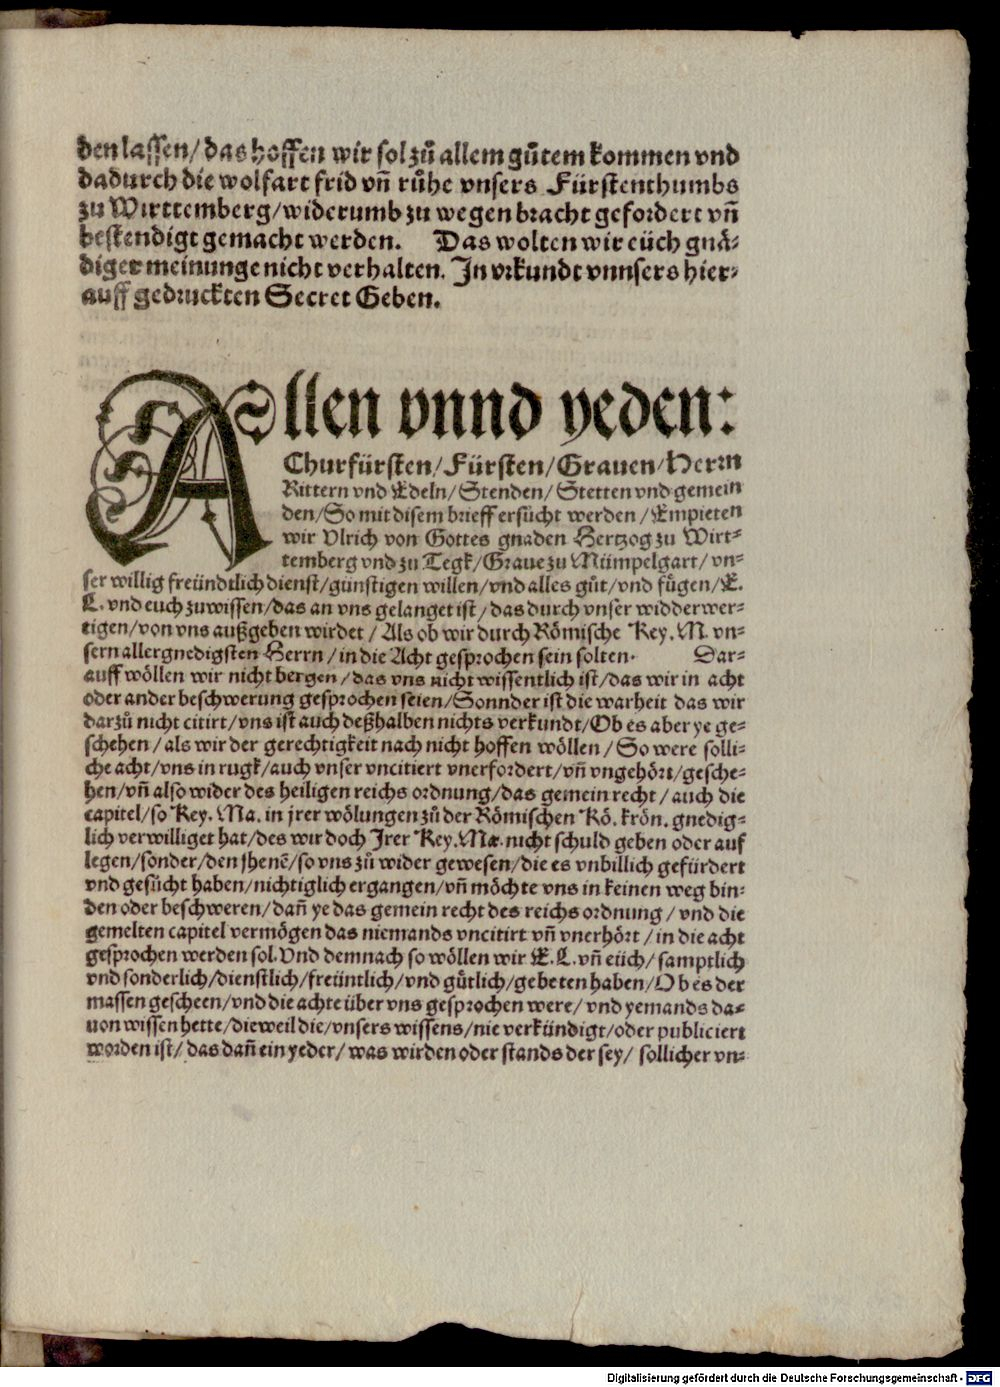 den lassen/ das hoffen wir sol zů allem gůtem kommen vnd
dadurch die wolfart frid vñ růhe vnsers Fürstenthumbs
zu Wirttemberg/widerumb zu wegen bracht gefordert vñ
bestendigt gemacht werden. Das wolten wir eüch gnä⸗
diger meinunge nicht verhalten. In vrkundt vnnsers hier⸗
auff gedruckten Secret Geben.
Allen vnnd yeden:
Churfürsten/Fürsten/Grauen/Herrn
Rittern vnd Edeln/Stenden/Stetten vnd gemein
den/So mit disem brieff ersücht werden/Empieten
wir Vlrich von Gottes gnaden Hertzog zu Wirt⸗
temberg vnd zu Tegk/Graue zu Mümpelgart/vn⸗
ser willig freündtlich dienst/günstigen willen/vnd alles gůt/vnd fügen/E.
L. vnd euch zuwissen/das an vns gelanget ist/das durch vnser widderwer⸗
tigen/von vns außgeben wirdet/Als ob wir durch Römische Key. M. vn⸗
sern allergnedigsten Herrn/in die Acht gesprochen sein solten. Dar⸗
auff wöllen wir nicht bergen/das vns nicht wissentlich ist/das wir in acht
oder ander beschwerung gesprochen seien/Sonnder ist die warheit das wir
darzů nicht citirt/vns ist auch deßhalben nichts verkundt/Ob es aber ye ge⸗
schehen/als wir der gerechtigkeit nach nicht hoffen wöllen/So were solli⸗
che acht/vns in rugk/auch vnser vncitiert vnerfordert/vñ vngehört/gesche⸗
hen/vñ also wider des heiligen reichs ordnung/das gemein recht/auch die
capitel/so Key. Ma. in jrer wölungen zů der Römischen Kö. krön. gnedig⸗
lich verwilliget hat/des wir doch Irer Key. Ma. nicht schuld geben oder auf
legen/sonder/den jhenē/so vns zů wider gewesen/die es vnbillich gefürdert
vnd gesůcht haben/nichtiglich ergangen/vñ möchte vns in keinen weg bin⸗
den oder beschweren/dañ ye das gemein recht des reichs ordnung/vnd die
gemelten capitel vermögen das niemands vncitirt vñ vnerhört/in die acht
gesprochen werden sol. Vnd demnach so wöllen wir E. L. vñ eüch/samptlich
vnd sonderlich/dienstlich/freüntlich/vnd gůtlich/gebeten haben/Ob es der
massen gescheen/vnd die achte über vns gesprochen were/vnd yemands da⸗
uon wissen hette/dieweil die/vnsers wissens/nie verkündigt/oder publiciert
worden ist/das dañ ein yeder/was wirden oder stands der sey/sollicher vn⸗
Digitalisierung gefördert durch die Deutsche Forschungsgemeinschaft - DFG